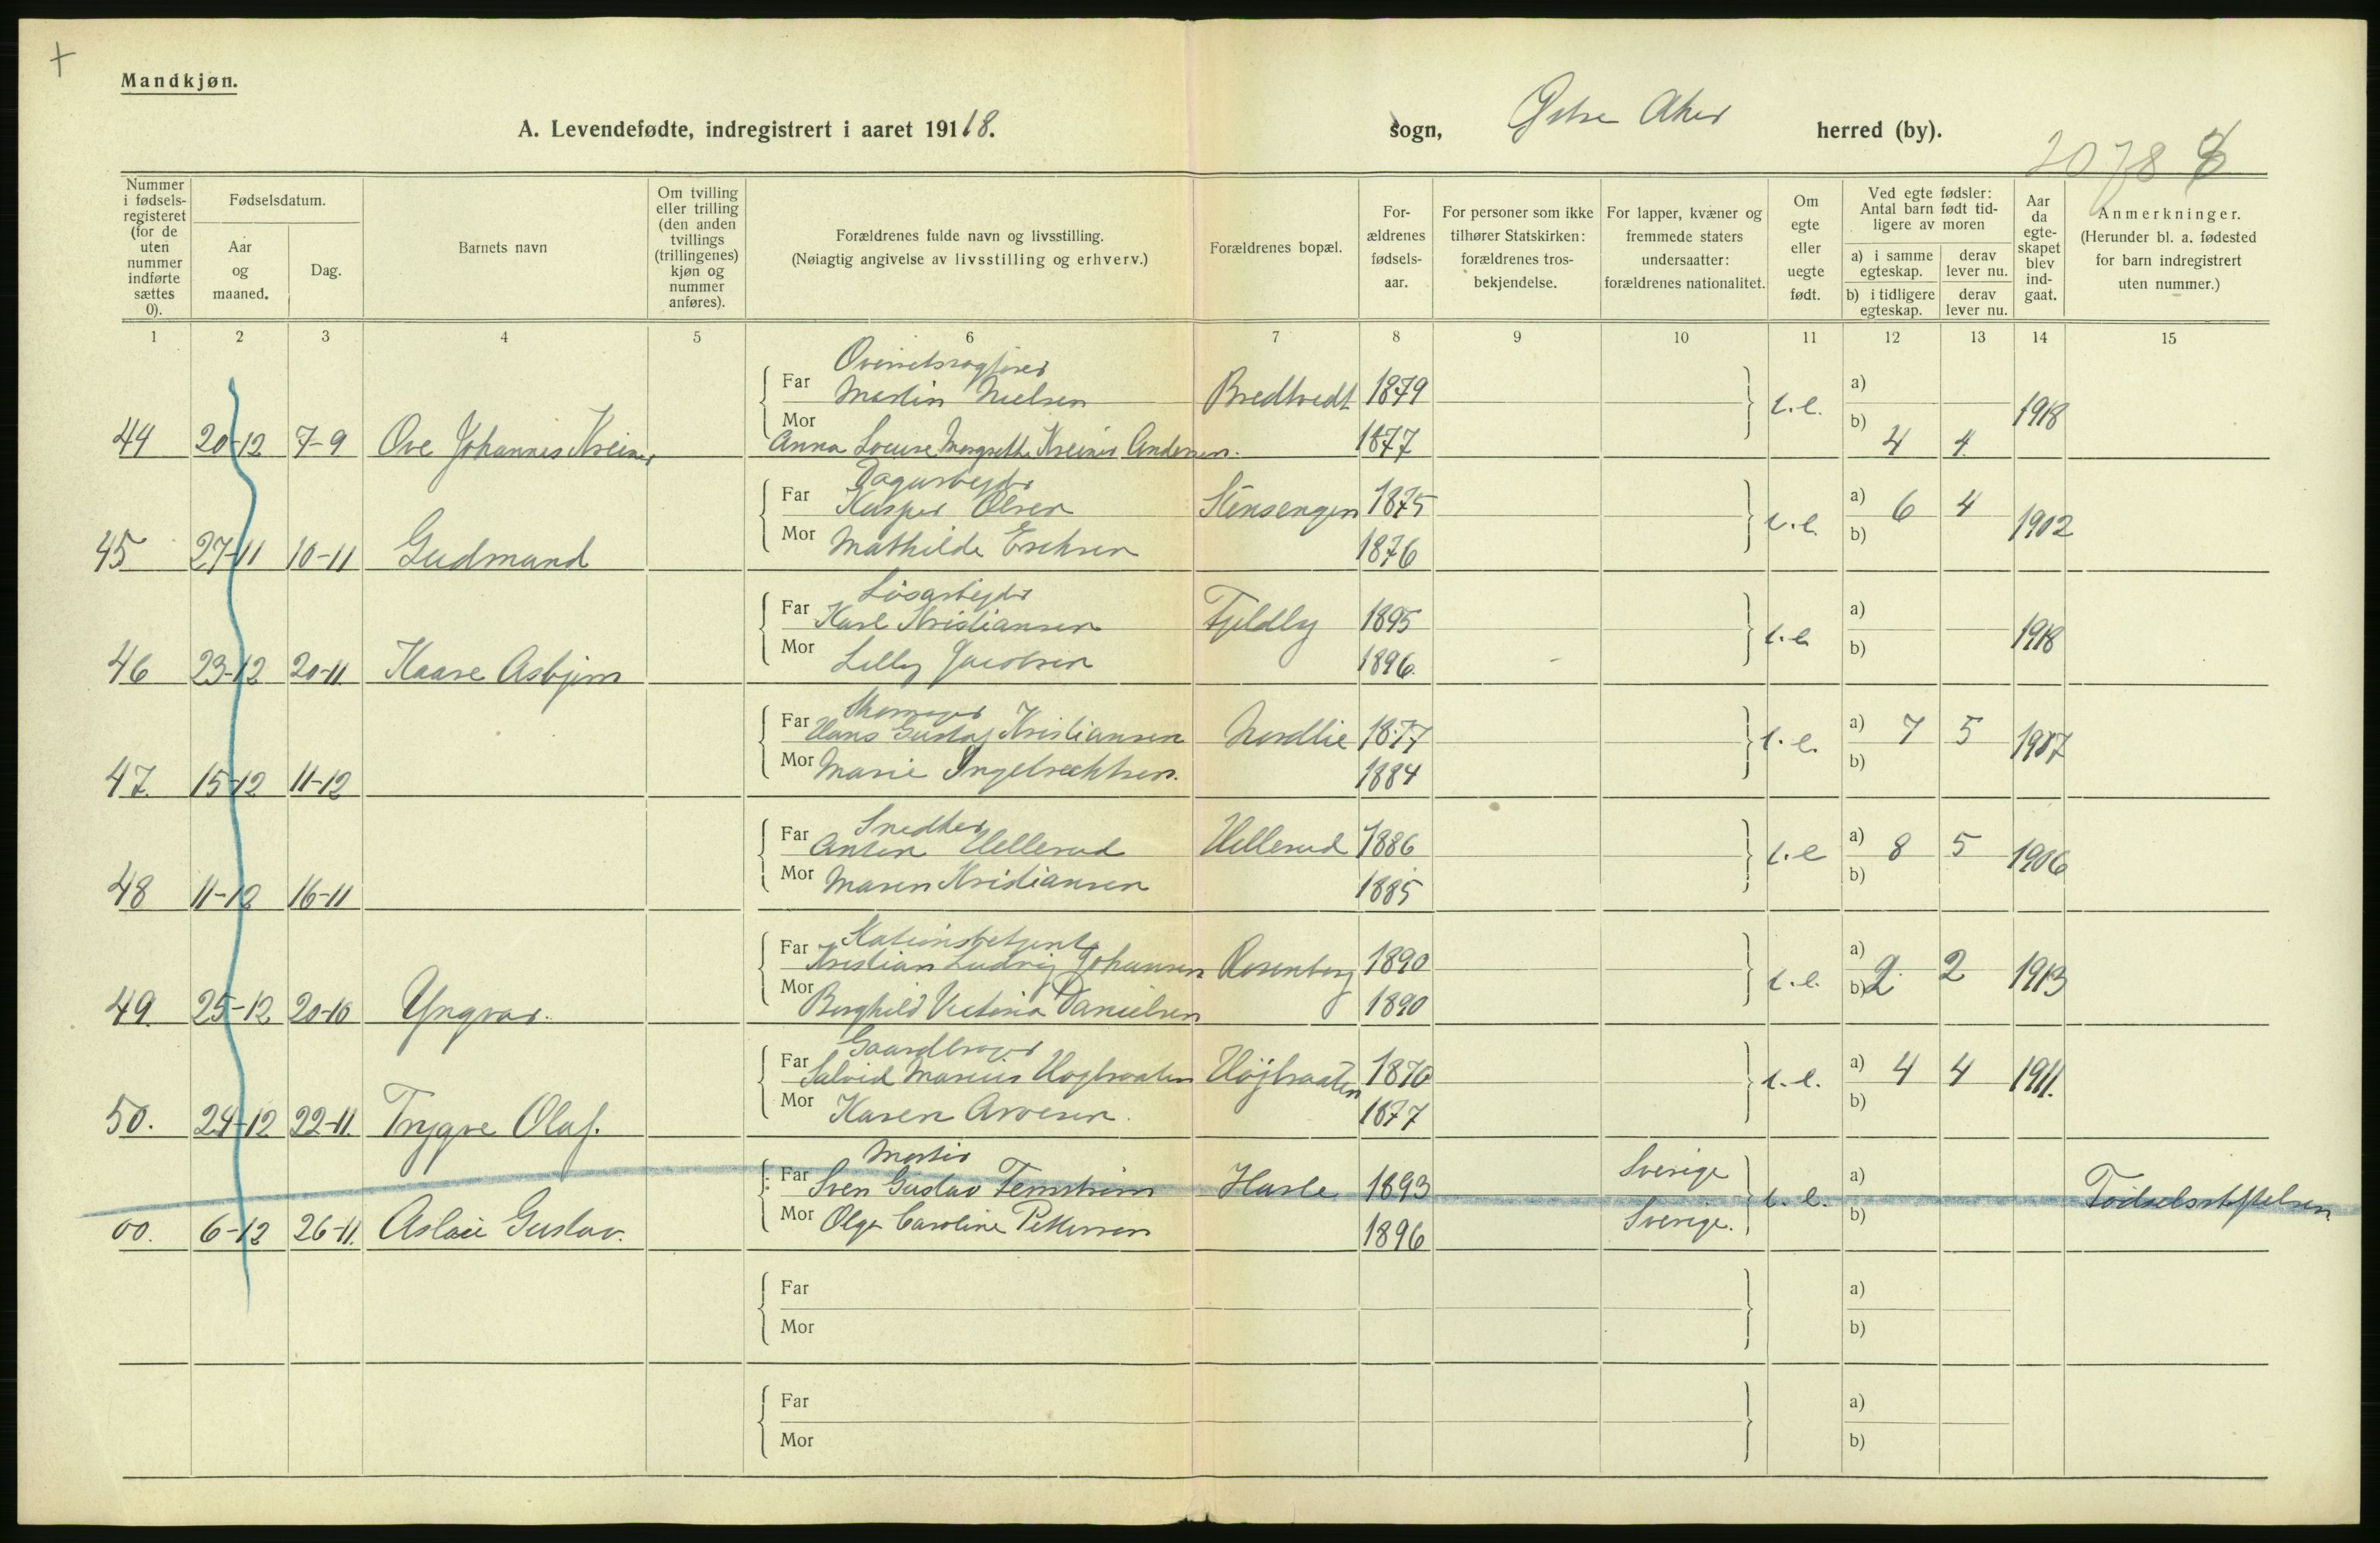 Mandkjøn.
A. Levendefødte, indregistrert i aaret 1918.
sogn, Østre Aker herred (by).
2078
Nummer i fødselsregisteret (for de uten nummer indførte sættes 0).
Fødselsdatum.
Aar og maaned.
Dag.
Barnets navn
Om tvilling eller trilling (den anden tvillings (trillingenes) kjøn og nummer anføres).
Forældrenes fulde navn og livsstilling.
(Nøiagtig angivelse av livsstilling og erhverv.)
Forældrenes bopæl.
Forældrenes fødselsaar.
For personer som ikke tilhører Statskirken: forældrenes trosbekjendelse.
For lapper, kvæner og fremmede staters undersaatter: forældrenes nationalitet.
Om egte eller uegte født.
Ved egte fødsler: Antal barn født tidligere av moren
a) i samme egteskap.
derav lever nu.
b) i tidligere egteskap.
derav lever nu.
Aar da egteskapet blev indgaat.
Anmerkninger.
(Herunder bl. a. fødested for barn indregistrert uten nummer.)
1 2 3 4 5 6 7 8 9 10 11 12 13 14 15
Overretssagfører
Far Martin Nielsen Bredtvedt 1879 a)
44 20-12 7-9 Ove Johannes Kreiner Mor Anna Louise Margrethe Kreiner Andersen. 1877 e.e. b) 4 4 1918
Dagarbeyder
Far Kasper Olsen Stensengen 1875 a) 6 4
45 27-11 10-11 Gudmand Mor Mathilde Eriksen 1876 e.e. b) 1902
Løsarbeyder
Far Karl Kristiansen Fjeldby 1895 a)
46 23-12 20-11 Kaare Asbjørn Mor Lilly Jacobsen 1896. e.e. b) 1918
Skomager
Far Hans Gustav Kristiansen Nordlie 1877 a) 7 5
47. 15-12 11-12 Mor Marie Ingebrechtsen. 1884 e.e. b) 1907
Snedker
Far Anton Hellerud Hellerud 1886 a) 8 5
48 11-12 16-11 Mor Maren Kristiansen 1885 e.e b) 1906
Stationsbetjent
Far Kristian Ludvig Johansen Rosenborg 1890 a)
49. 25-12 20-10 Yngvar. Mor Borghild Victoria Danielsen 1890 e.e. b) 2 2 1913
Gaardbruger
Far Marius Høgbraaten Høgbraaten 1870 a) 4 4
50. 24-12 22-11. Trygve Olaf. Mor Karen Arvesen. 1877 e.e. b) 1911.
Far Sven Gustav Hasle 1893 Sverige a)
00. 6-12 26-11. Gustav. Mor Olga Caroline Pettersen 1896 Sverige. e.e. b) Fødselsstiftelsen
Far a)
Mor b)
Far a)
Mor b)